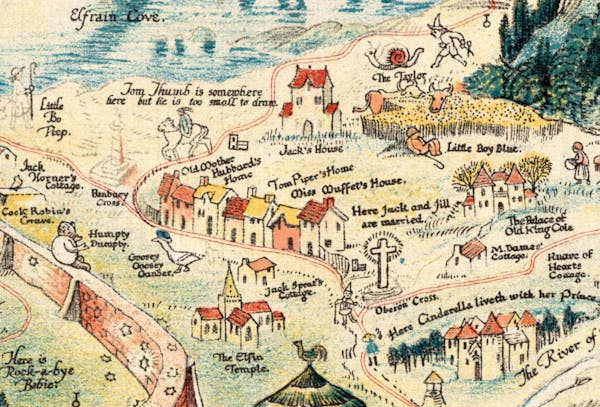 Elfrain Cove.
Tom Thumb is somewhere
here but he is too small to draw.
The Taylor
Little
Bo
Peep.
Jack's House
Little Boy Blue.
Jack
Horner's
Cottage.
Old Mother
Hubbard's
Home
Tom Piper's Home
Miss Muffet's House.
Banbury
Cross.
Here Jack and Jill
are married.
The Palace of
Old King Cole
Cock Robin's
Grave.
Humpty
Dumpty.
Goosey
Goosey
Gander.
M. Dames
Cottage.
Knave of
Hearts
Cottage
Jack Sprat's
Cottage.
Oberon' Cross.
Here Cinderella liveth with her Prince
The Elfin
Temple.
The River of
Here is
Rock-a-bye
Babie.